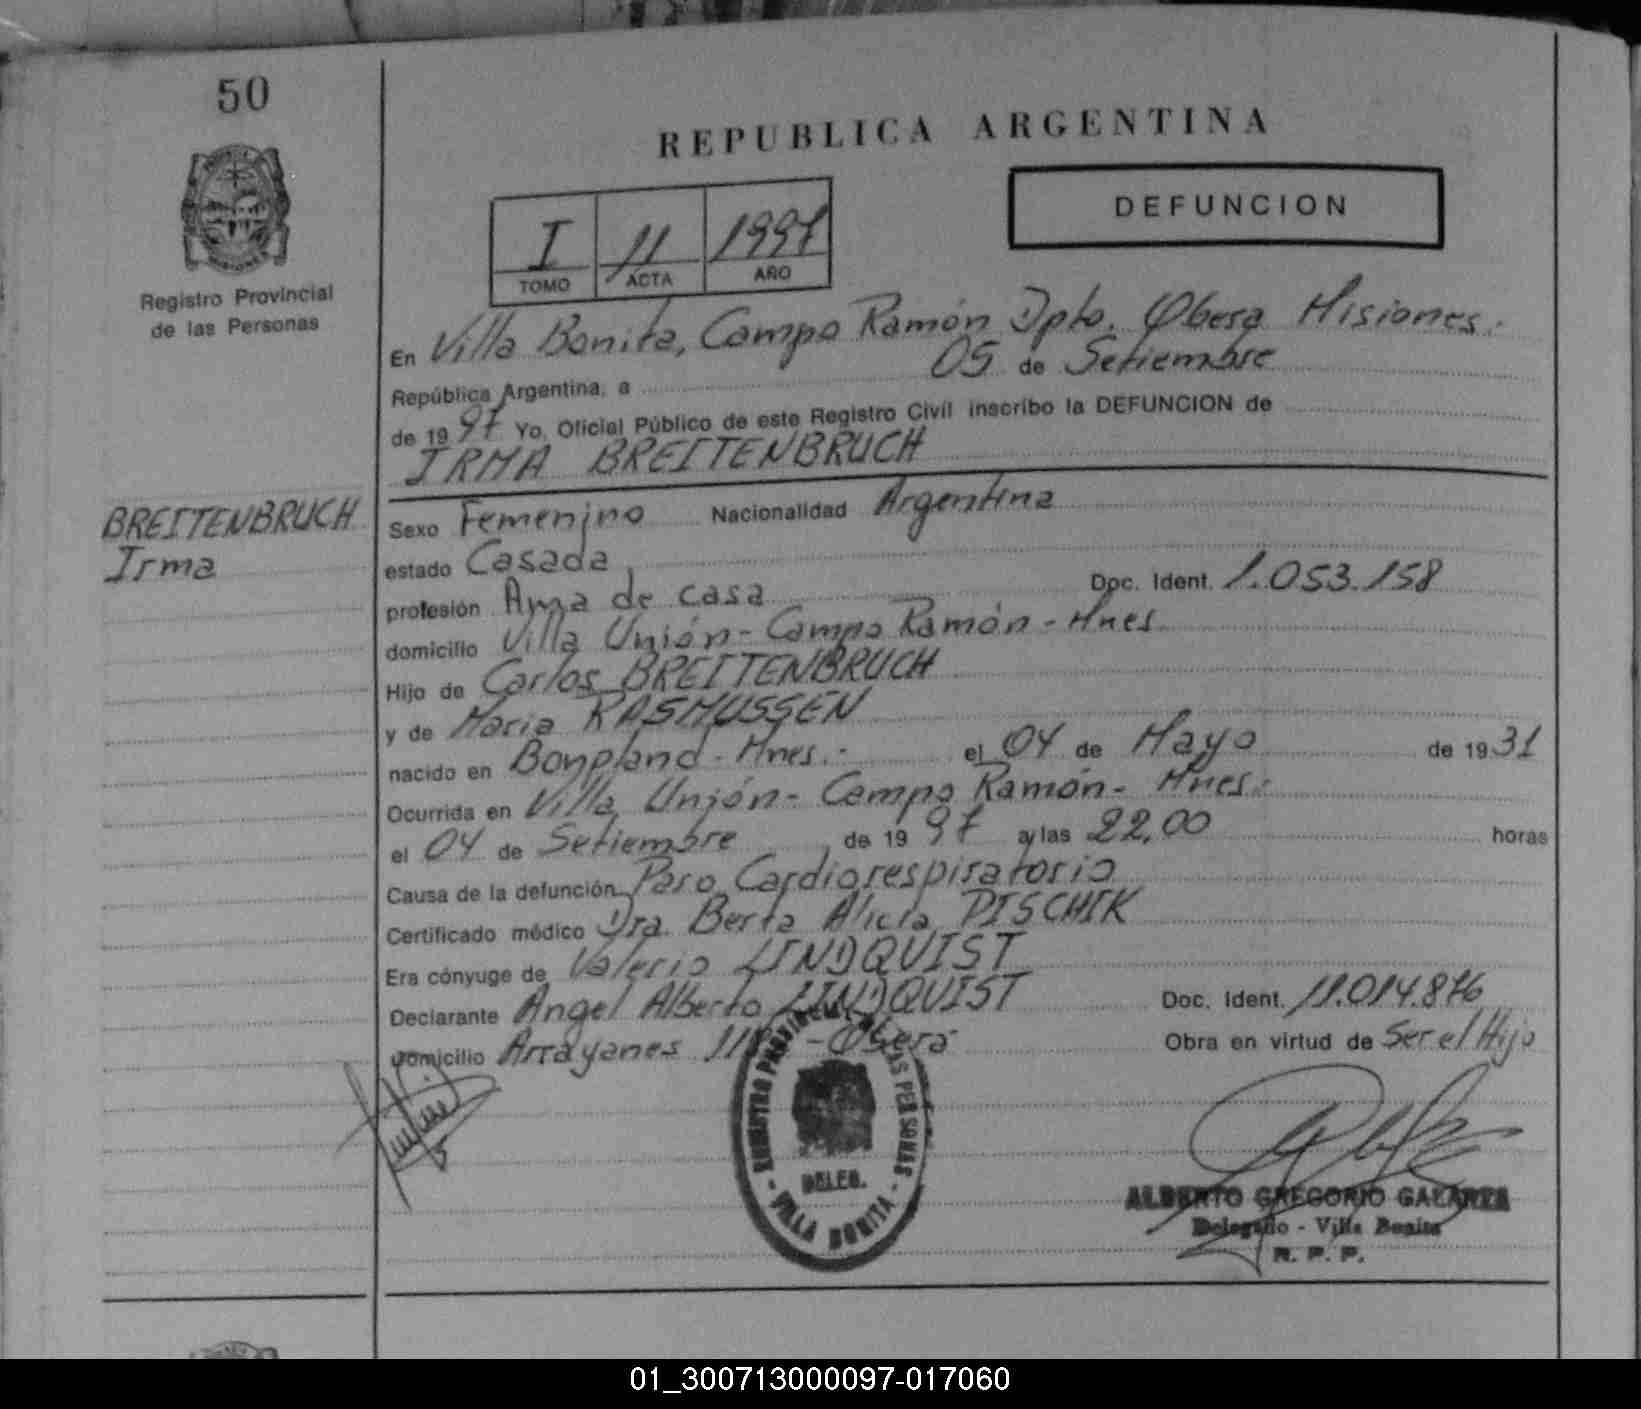 50
REPUBLICA ARGENTINA
DEFUNCION
I 11 1997
TOMO ACTA AÑO
MISIONES
Registro Provincial
de las Personas
En Villa Bonita, Campo Ramón Dpto. Oberá Misiones.
República Argentina, a 05 de Setiembre
de 1997 Yo, Oficial Público de este Registro Civil inscribo la DEFUNCION de
IRMA BREITENBRUCH
BREITENBRUCH
Irma
Sexo Femenino Nacionalidad Argentina
estado Casada
profesión Ama de casa Doc. Ident. 1.053.158
domicilio Villa Unión - Campo Ramón - Mnes.
Hijo de Carlos BREITENBRUCH
y de María RASMUSSEN
nacido en Bonpland - Mnes. - el 04 de Mayo de 1931
Ocurrida en Villa Unión - Campo Ramón - Mnes. -
el 04 de Setiembre de 1997 a las 22,00 horas
Causa de la defunción Paro Cardiorespiratorio
Certificado médico Dra. Berta Alicia PISCHIK
Era cónyuge de Valerio LINDQUIST
Declarante Angel Alberto LINDQUIST Doc. Ident. 11.014.876
domicilio Arrayanes - Oberá Obra en virtud de Ser el Hijo
REGISTRO PROVINCIAL DE LAS PERSONAS
DELEG.
- VILLA BONITA -
ALBERTO GREGORIO GALARZA
Delegado - Villa Bonita
R. P. P.
01_300713000097-017060